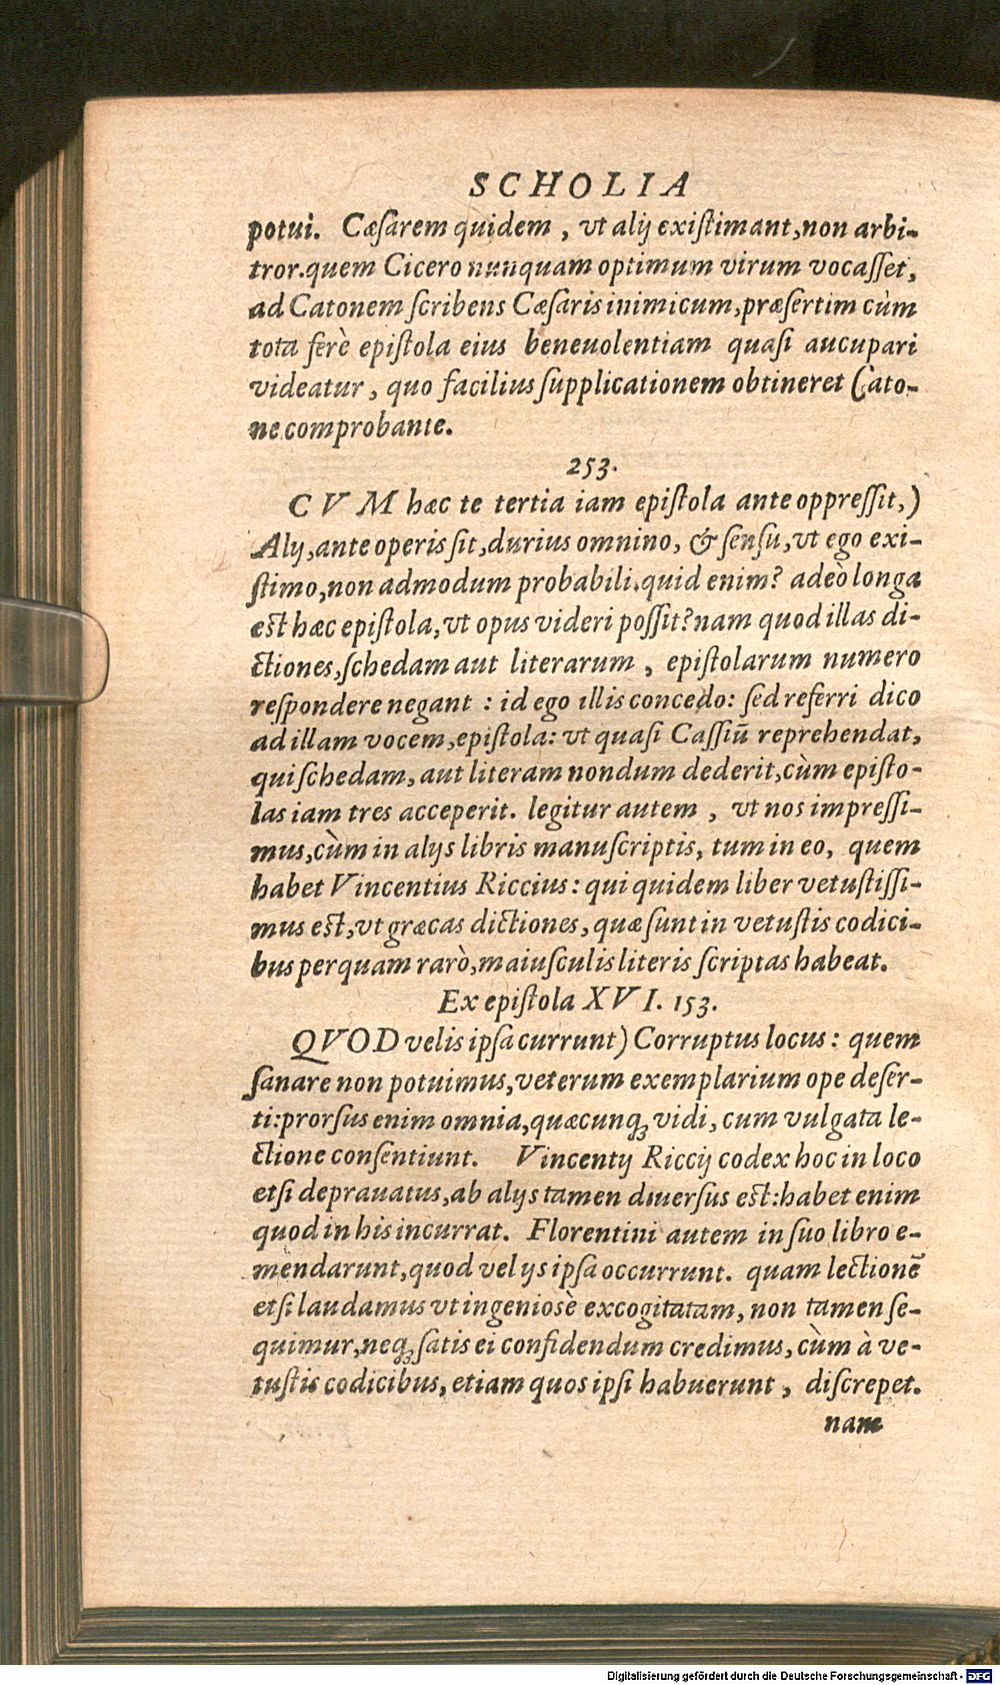 SCHOLIA
potui. Cæſarem quidem, vt alij exiſtimant, non arbi-
tror. quem Cicero nunquam optimum virum vocaſſet,
ad Catonem ſcribens Cæſaris inimicum, præſertim cùm
tota ferè epiſtola eius beneuolentiam quaſi aucupari
videatur, quo facilius ſupplicationem obtineret Cato-
ne comprobante.
253.
CVM hæc te tertia iam epiſtola ante oppreſſit,)
Alij, ante operis ſit, durius omnino, & ſenſu, vt ego exi-
ſtimo, non admodum probabili. quid enim? adeò longa
eſt hæc epiſtola, vt opus videri poſſit? nam quod illas di-
ctiones, ſchedam aut literarum, epiſtolarum numero
reſpondere negant: id ego illis concedo: ſed referri dico
ad illam vocem, epiſtola: vt quaſi Caſſiū reprehendat,
qui ſchedam, aut literam nondum dederit, cùm epiſto-
las iam tres acceperit. legitur autem, vt nos impreſſi-
mus, cùm in alijs libris manuſcriptis, tum in eo, quem
habet Vincentius Riccius: qui quidem liber vetuſtiſſi-
mus eſt, vt græcas dictiones, quæ ſunt in vetuſtis codici-
bus perquam rarò, maiuſculis literis ſcriptas habeat.
Ex epiſtola XVI. 153.
QVOD velis ipſa currunt) Corruptus locus: quem
ſanare non potuimus, veterum exemplarium ope deſer-
ti: prorſus enim omnia, quæcunqꝫ vidi, cum vulgata le-
ctione conſentiunt. Vincentij Riccij codex hoc in loco
etſi deprauatus, ab alijs tamen diuerſus eſt: habet enim
quod in his incurrat. Florentini autem in ſuo libro e-
mendarunt, quod velijs ipſa occurrunt. quam lectionē
etſi laudamus vt ingenioſè excogitatam, non tamen ſe-
quimur, neqꝫ ſatis ei confidendum credimus, cùm à ve-
tuſtis codicibus, etiam quos ipſi habuerunt, diſcrepet.
nam
Digitalisierung gefördert durch die Deutsche Forschungsgemeinschaft - DFG